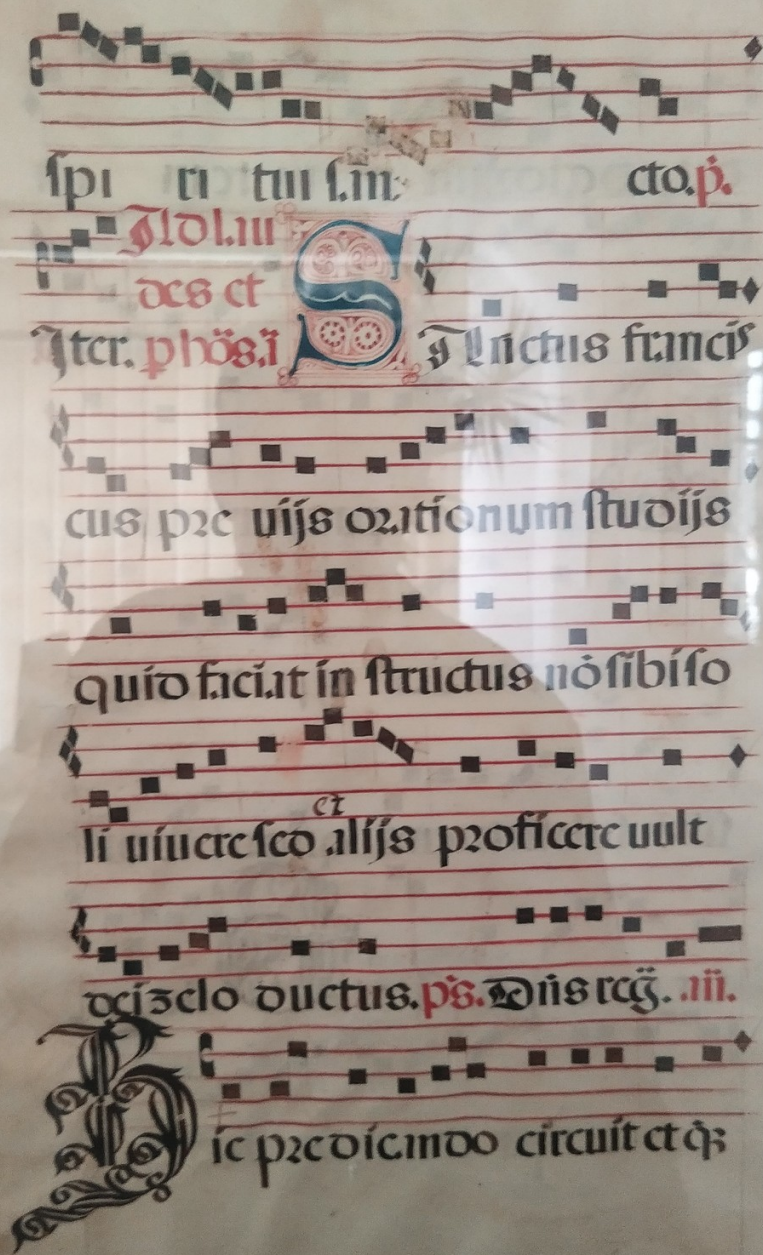 spi ri tui san cto. p̄.
Ad lau
des et
Iter. phōs. ī SAnctus francis
cus pre uijs orationum studijs
quid faciat in structus nō sibi so
li uiuere sed et alijs proficere uult
dei zelo ductus. p̄s. Dn̄s reḡ. .an̄.
Hic predicando circuit et q̄;